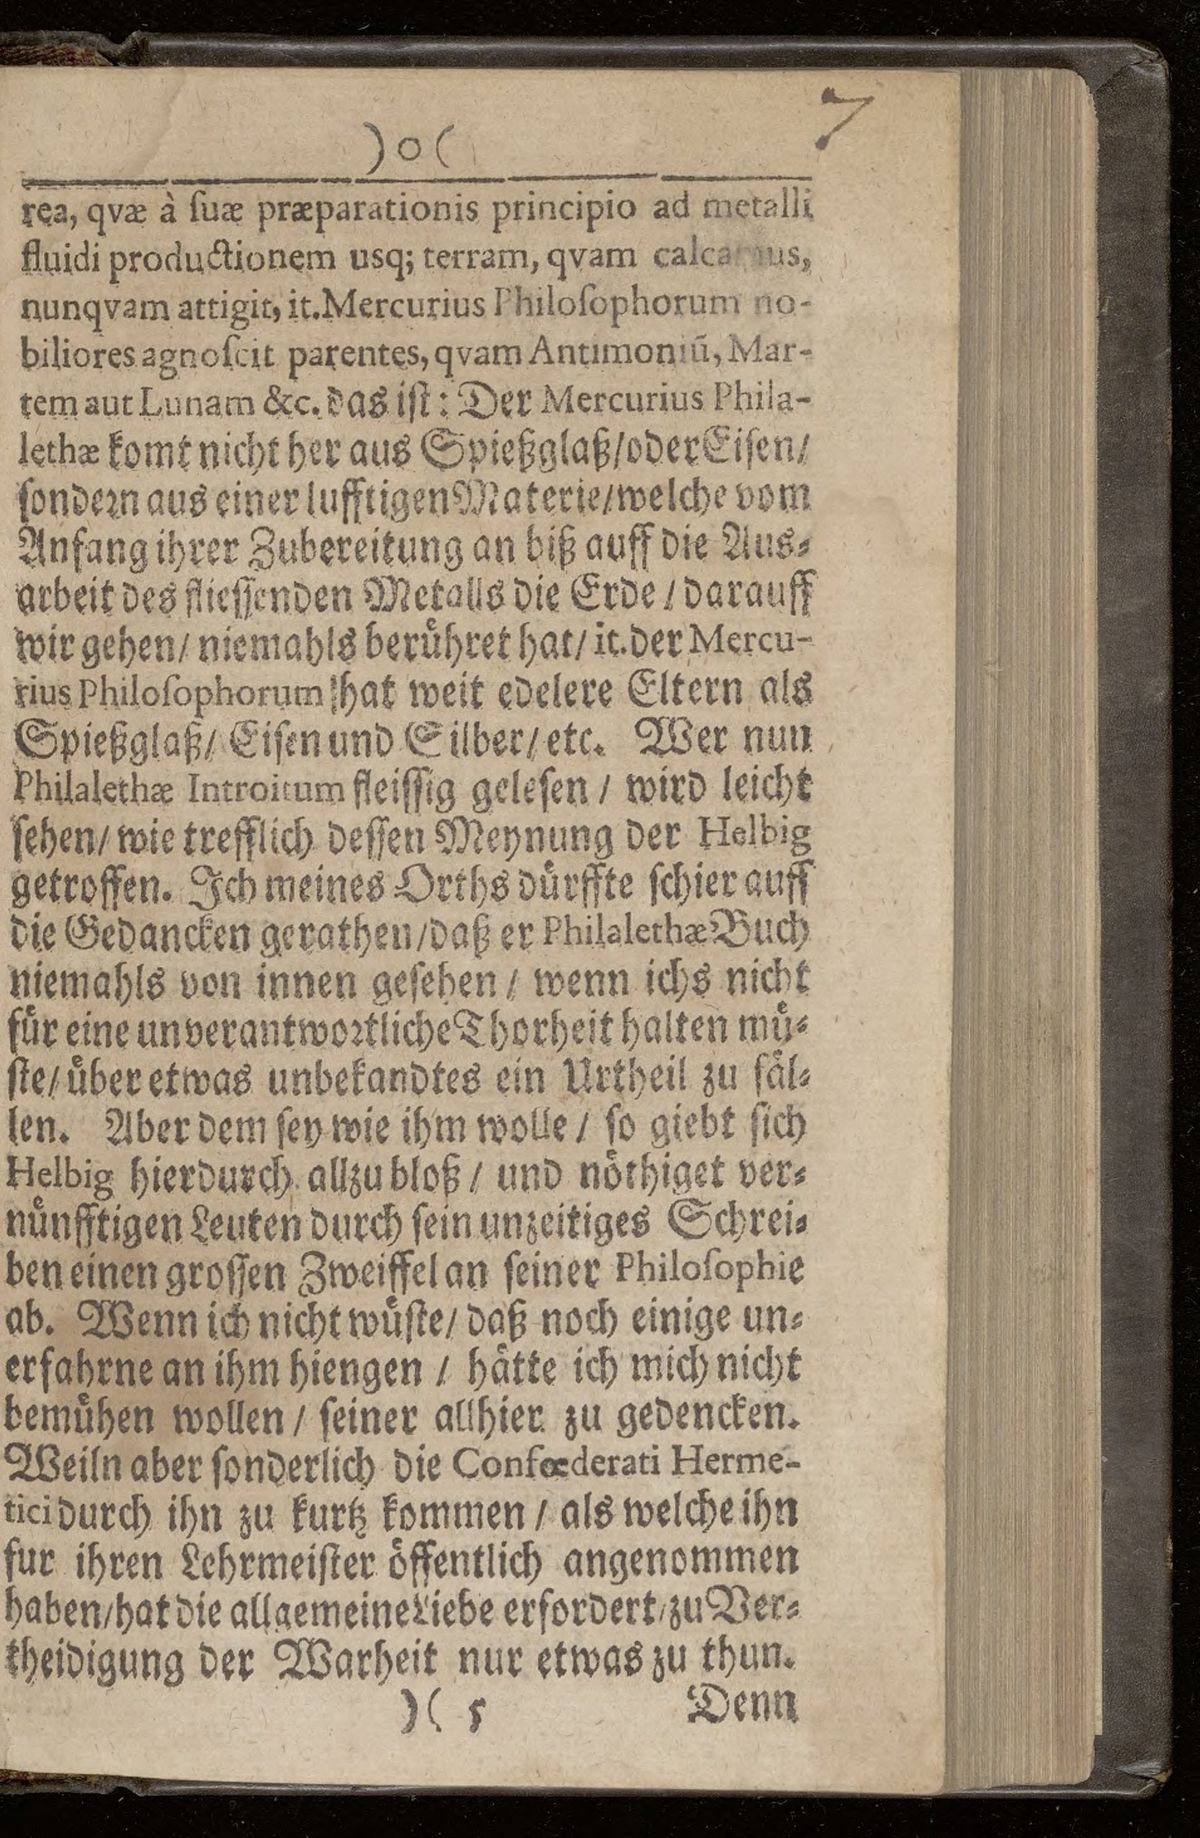 7
)o(
rea, qvæ à ſuæ præparationis principio ad metalli
fluidi productionem usq; terram, qvam calcamus,
nunqvam attigit, it. Mercurius Philoſophorum no-
biliores agnoſcit parentes, qvam Antimoniũ, Mar-
tem aut Lunam &c. das iſt: Der Mercurius Phila-
lethæ komt nicht her aus Spießglaß/oder Eiſen/
ſondern aus einer lufftigen Materie/welche vom
Anfang ihrer Zubereitung an biß auff die Aus-
arbeit des flieſſenden Metalls die Erde / darauff
wir gehen/ niemahls beruͤhret hat/ it. der Mercu-
rius Philoſophorum hat weit edelere Eltern als
Spießglaß/ Eiſen und Silber/ etc. Wer nun
Philalethæ Introitum fleiſſig geleſen / wird leicht
ſehen/ wie trefflich deſſen Meynung der Helbig
getroffen. Ich meines Orths duͤrffte ſchier auff
die Gedancken gerathen/daß er Philalethæ Buch
niemahls von innen geſehen / wenn ichs nicht
fuͤr eine unverantwortliche Thorheit halten muͤ-
ſte/ uͤber etwas unbekandtes ein Urtheil zu faͤl-
len. Aber dem ſey wie ihm wolle / ſo giebt ſich
Helbig hierdurch allzu bloß / und noͤthiget ver-
nuͤnfftigen Leuten durch ſein unzeitiges Schrei-
ben einen groſſen Zweiffel an ſeiner Philoſophie
ab. Wenn ich nicht wuͤſte/ daß noch einige un-
erfahrne an ihm hiengen / haͤtte ich mich nicht
bemuͤhen wollen / ſeiner allhier zu gedencken.
Weiln aber ſonderlich die Confœderati Herme-
tici durch ihn zu kurtz kommen / als welche ihn
fur ihren Lehrmeiſter oͤffentlich angenommen
haben/hat die allgemeine Liebe erfordert/zu Ver-
theidigung der Warheit nur etwas zu thun.
)( 5 Denn